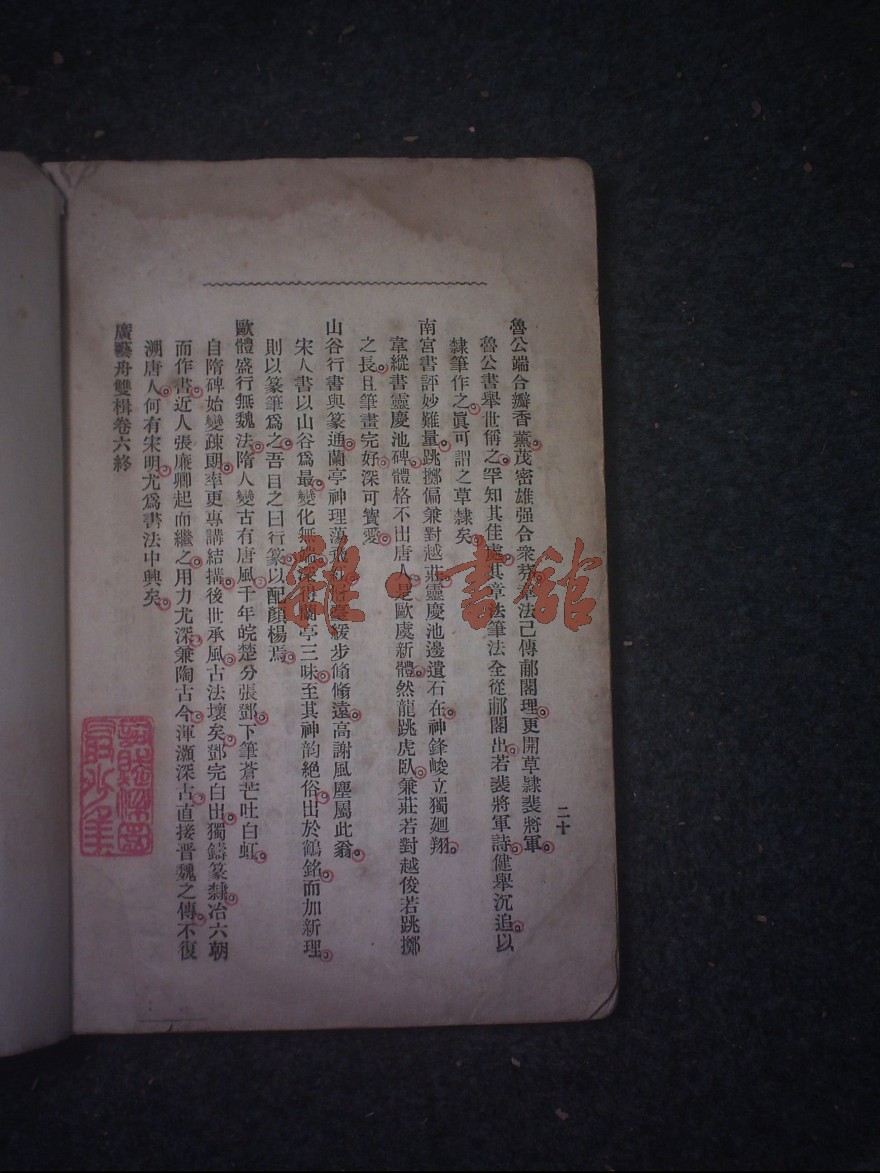 二十
魯公端合瓣香薰茂密雄强合衆芬章法已傳郙閣理更開草隸裴將軍
魯公書舉世稱之罕知其佳處其章法筆法全從郙閣出若裴將軍詩健舉沉追以
隸筆作之眞可謂之草隸矣
南宮書評妙難量跳擲偏兼對越莊靈慶池邊遺石在神鋒峻立獨廻翔
韋縱書靈慶池碑體格不出唐人是歐虞新體然龍跳虎臥兼莊若對越俊若跳擲
之長且筆畫完好深可寶愛
山谷行書與篆通蘭亭神理蕩 緩步翛翛遠高謝風塵屬此翁
宋人書以山谷爲最變化無端深得蘭亭三昧至其神韵絕俗出於鶴銘而加新理
則以篆筆爲之吾目之曰行篆以配顏楊焉
歐體盛行無魏法隋人變古有唐風千年皖楚分張鄧下筆蒼芒吐白虹
自隋碑始變疎朗率更專講結搆後世承風古法壞矣鄧完白出獨鑄篆隸冶六朝
而作書近人張廉卿起而繼之用力尤深兼陶古今渾灝深古直接晋魏之傳不復
溯唐人何有宋明尤爲書法中興矣
廣藝舟雙楫卷六終
雜·書館